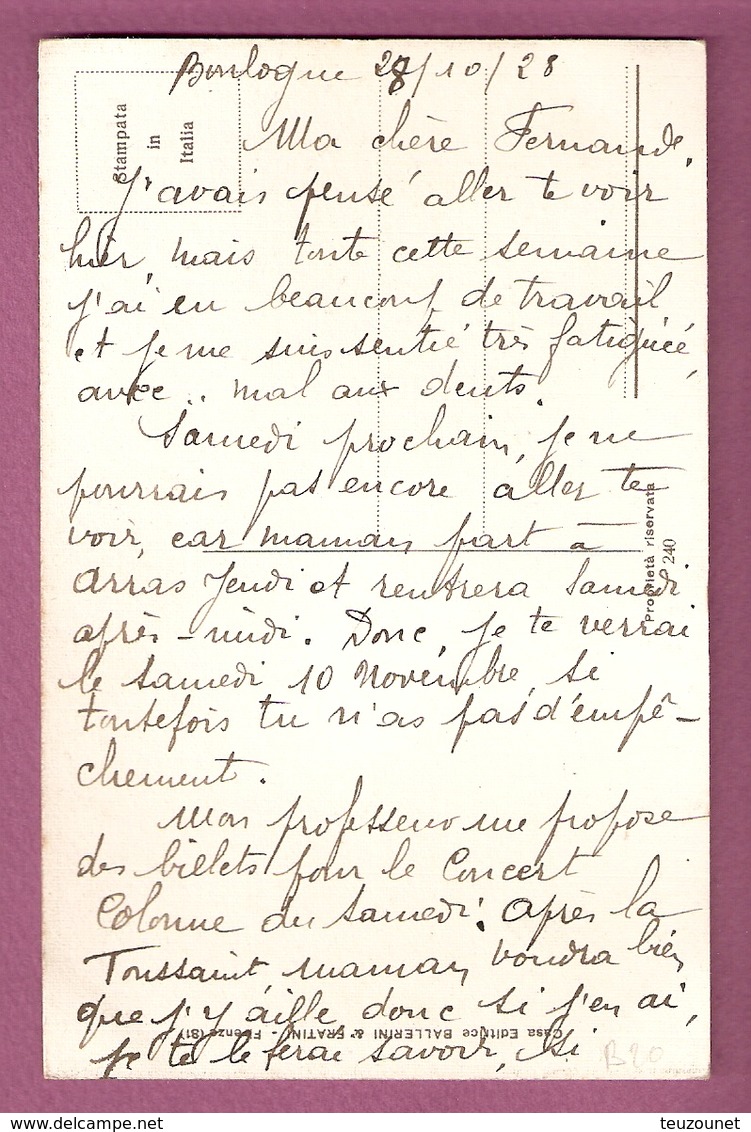 Boulogne 28/10/28
Ma chère Fernande,
J'avais pensé aller te voir
hier, mais toute cette semaine
j'ai eu beaucoup de travail
et je me suis sentie très fatiguée,
avec .. mal aux dents.
Samedi prochain, je ne
pourrais pas encore aller te
voir, car maman part à
Arras Jeudi et rentrera Samedi
après-midi. Donc, je te verrai
le Samedi 10 Novembre, si
toutefois tu n'as pas d'empê-
chement.
Mon professeur me propose
des billets pour le Concert
Colonne du Samedi. Après la
Toussaint maman voudra bien
que j'y aille donc si j'en ai,
je te le ferai savoir, si
Stampata
in
Italia
Proprietà riservata
240
Casa Editrice BALLERINI & FRATINI - Firenze (81)
B20
www.delcampe.net
teuzounet